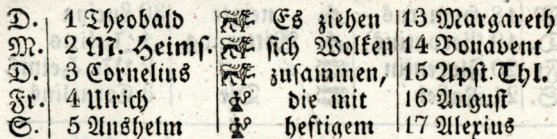 D. 1 Theobald Es ziehen 13 Margareth
M. 2 M. Heims. sich Wolken 14 Bonavent
D. 3 Cornelius zusammen, 15 Apst. Thl.
Fr. 4 Ulrich die mit 16 August
S. 5 Anshelm heftigem 17 Alexius